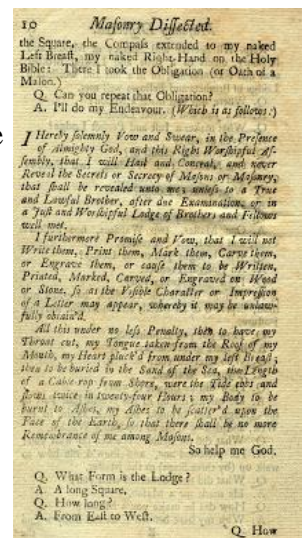 10 Masonry Dissected.
the Square, the Compass extended to my naked
Left Breast, my naked Right-Hand on the Holy
Bible: There I took the Obligation (or Oath of a
Mason.)
Q. Can you repeat that Obligation?
A. I'll do my Endeavour. (Which is as follows.)
I Hereby solemnly Vow and Swear, in the Presence
of Almighty God, and this Right Worshipful As-
sembly, that I will Hail and Conceal, and never
Reveal the Secrets or Secrecy of Masons or Masonry,
that shall be revealed unto me; unless to a True
and Lawful Brother, after due Examination, or in
a Just and Worshipful Lodge of Brothers and Fellows
well met.
I furthermore Promise and Vow, that I will not
Write them, Print them, Mark them, Carve them,
or Engrave them, or cause them to be Written,
Printed, Marked, Carved, or Engraved on Wood
or Stone, so as the Visible Character or Impression
of a Letter may appear, whereby it may be unlaw-
fully obtain'd.
All this under no less Penalty, then to have my
Throat cut, my Tongue taken from the Roof of my
Mouth, my Heart pluck'd from under my left Breast;
then to be buried in the Sand of the Sea, the Length
of a Cable rop from Shore, were the Tide ebbs and
flows twice in twenty-four Hours; my Body to be
burnt to Ashes, my Ashes to be scatter'd upon the
Face of the Earth, so that there shall be no more
Remembrance of me among Masons.
So help me God.
Q. What Form is the Lodge?
A. A long Square.
Q. How long?
A. From East to West.
Q. How